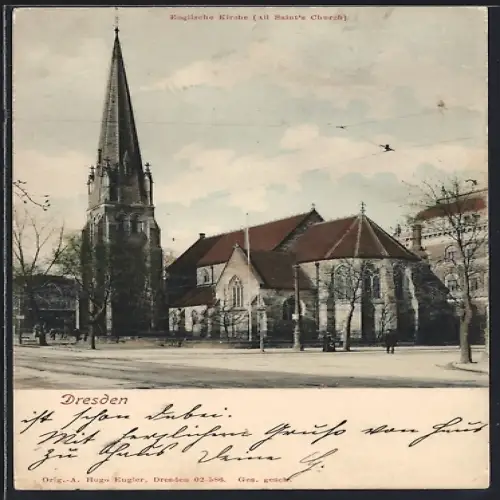 Englische Kirche (All Saint's Church)
Dresden
ist schon dabei.
Mit herzlichem Gruß von Haus
zu Haus Deine
Orig.-A. Hugo Engler, Dresden 02-586. Ges. gesch.